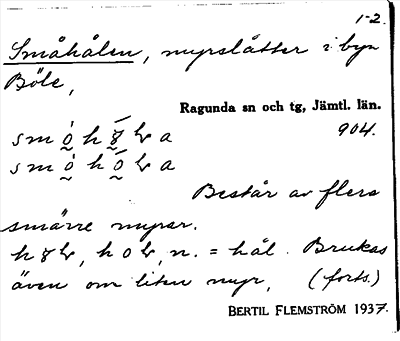 1-2.
Småhålen, myrslåtter i byn
Böle,
Ragunda sn och tg, Jämtl. län.
904.
Består av flera
smärre myrar.
n. = hål. Brukas
även om liten myr, (forts.)
BERTIL FLEMSTRÖM 1937.